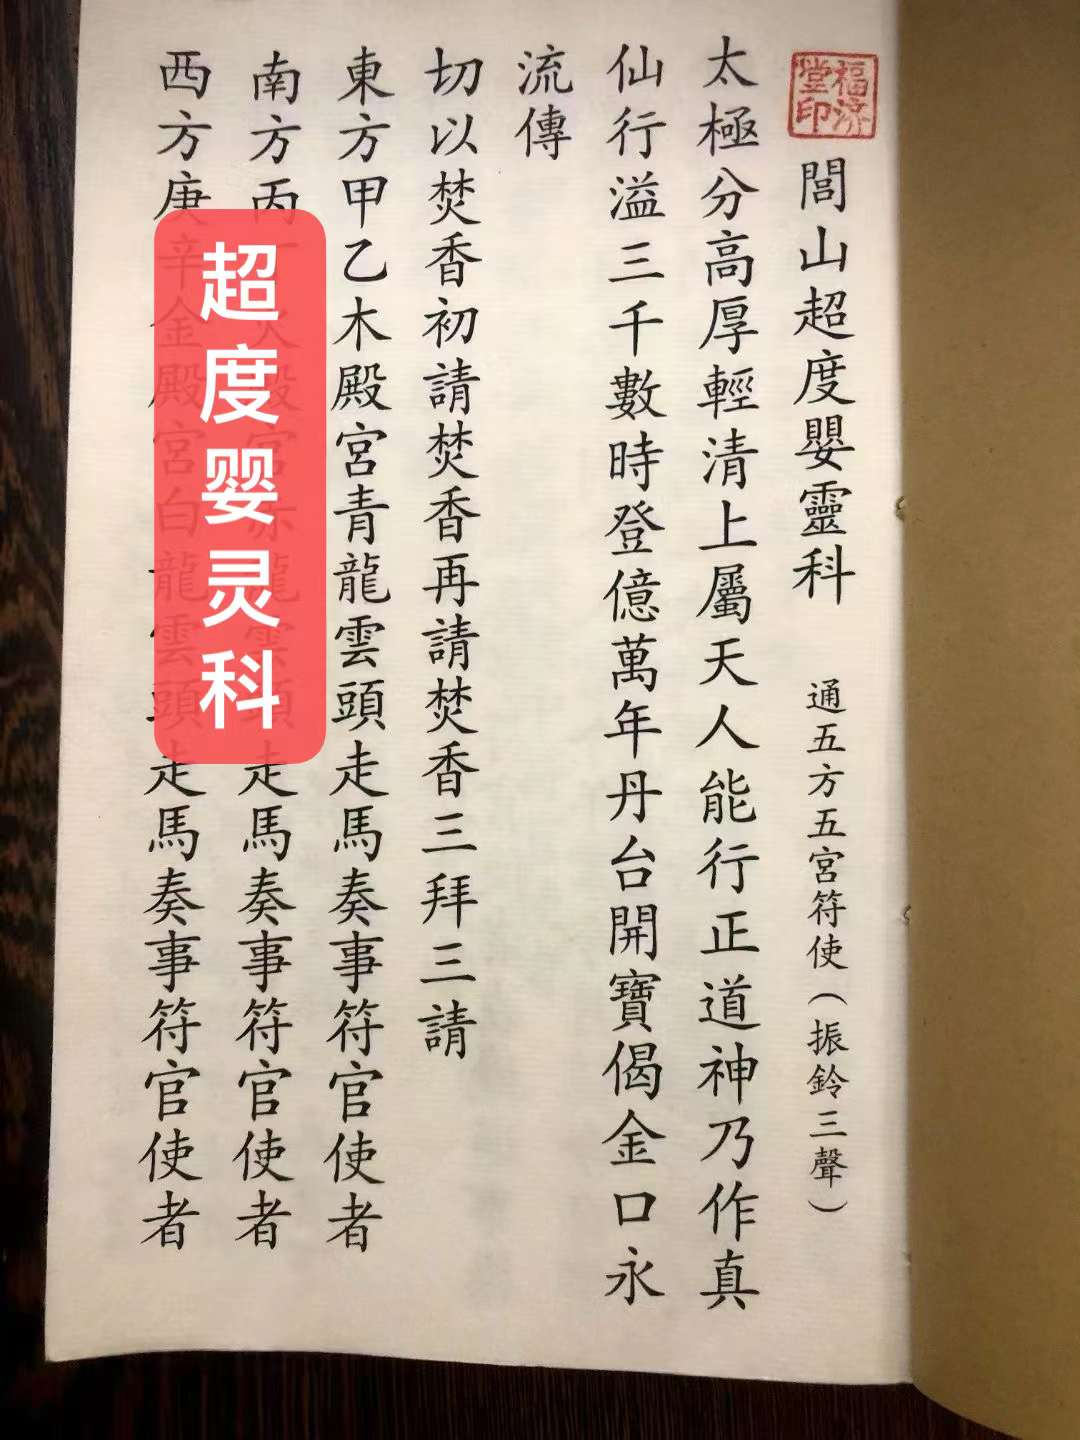 福济堂印
閭山超度嬰靈科 通五方五宮符使（振鈴三聲）
太極分高厚輕清上屬天人能行正道神乃作真
仙行溢三千數時登億萬年丹台開寶偈金口永
流傳
切以焚香初請焚香再請焚香三拜三請
東方甲乙木殿宮青龍雲頭走馬奏事符官使者
南方丙丁火殿宮赤龍雲頭走馬奏事符官使者
西方庚辛金殿宮白龍雲頭走馬奏事符官使者
超度婴灵科